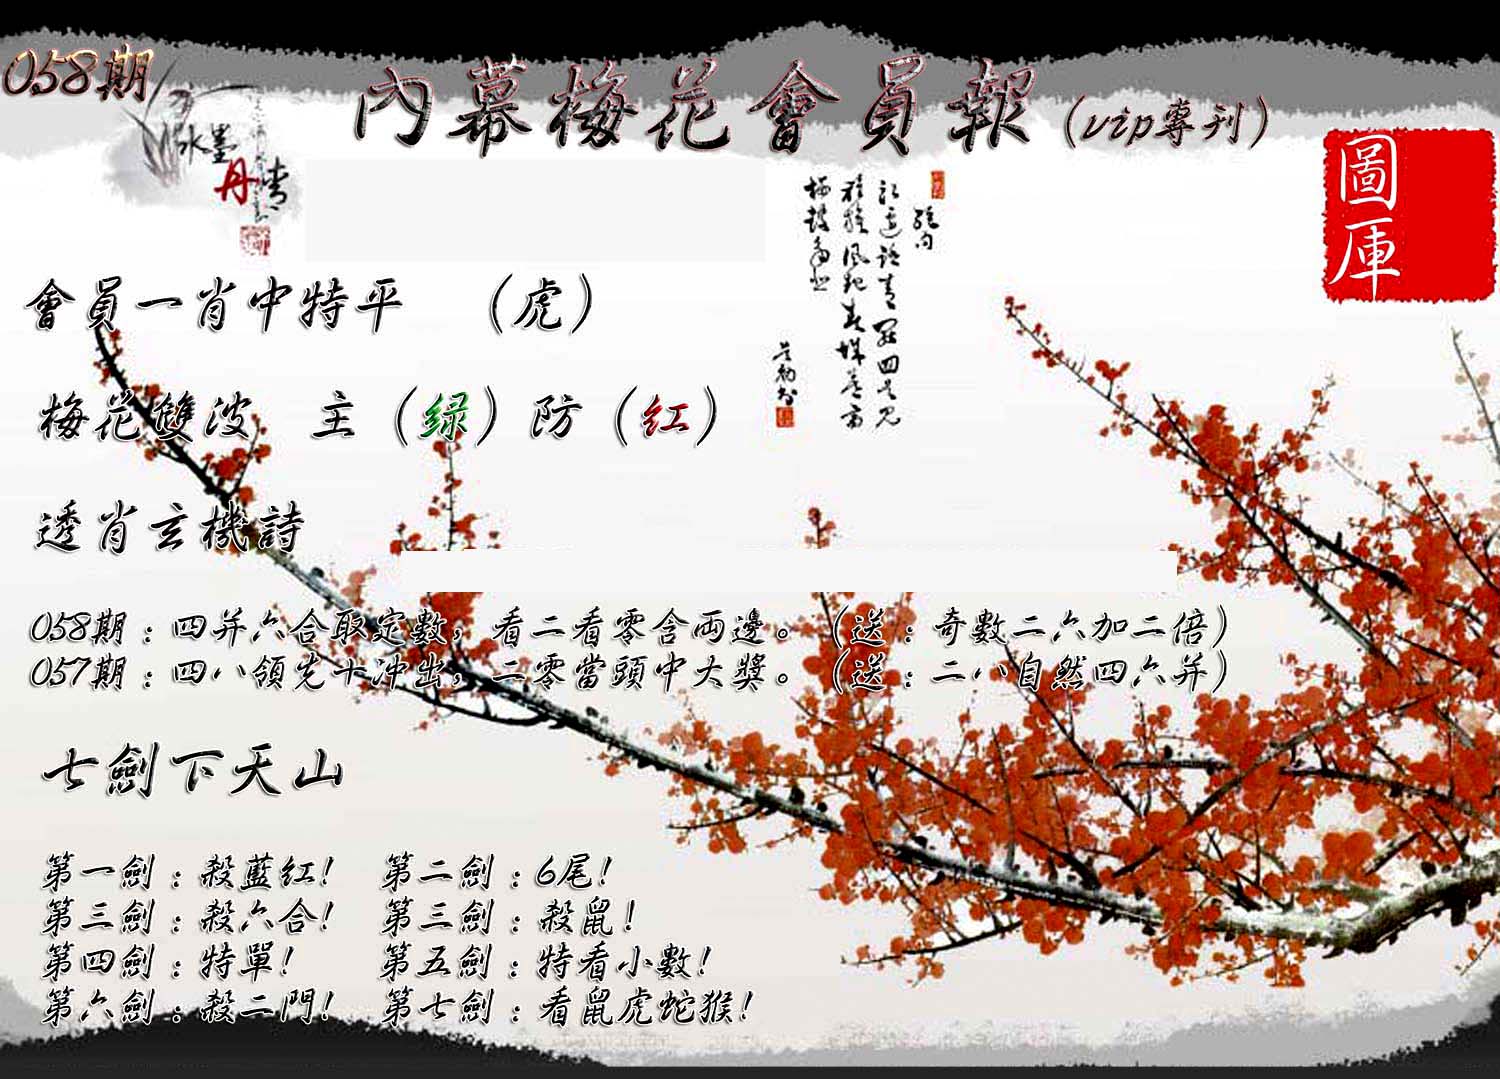 058期
內幕梅花會員報（vip專刊）
水墨
丹青
圖庫
會員一肖中特平　（虎）
梅花雙波　主（绿）防（红）
透肖玄機詩
058期：四并六合取定數，看二看零含両邊。（送：奇數二六加二倍）
057期：四八領先十冲出，二零當頭中大獎。（送：二八自然四六并）
七劍下天山
第一劍：殺藍红!　第二劍：6尾!
第三劍：殺六合!　第三劍：殺鼠!
第四劍：特單!　第五劍：特看小數!
第六劍：殺二門!　第七劍：看鼠虎蛇猴!